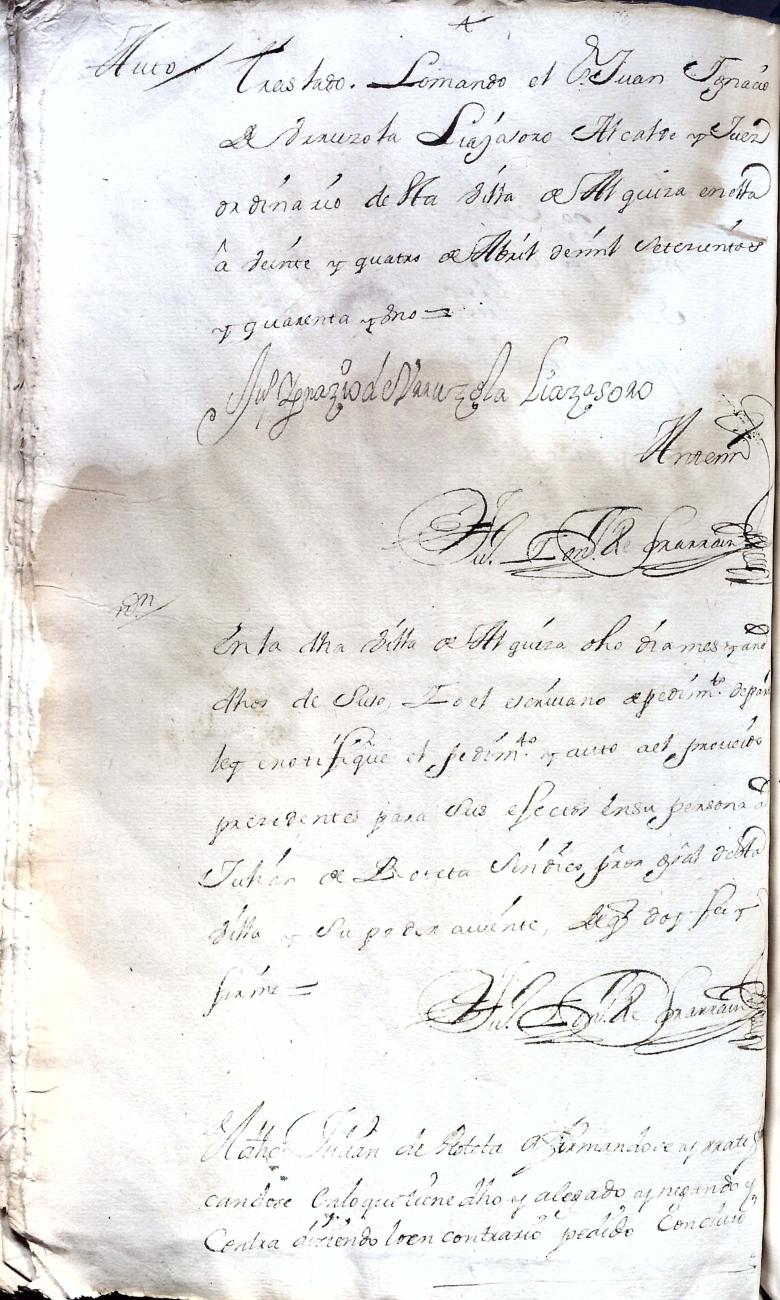 Auto
Traslado. Lo mando el Sr. Juan Ignacio
de Vrruzola Liazasoro Alcalde y Juez
ordinário de sta Villa de Alquiza en ella
â veinte y quatro de Abril de mil Setecientos
y quarenta y vno =
Juº Ygnazio de Vrruzola Liazasoro
Antemi
Ju. Ton. de Yrarrain
n.on
En la dha Villa de Alquiza dho dia mes y año
dhos de Suso, Yo el escriuano de pedim.to de par
ley e notifiqûe el pedim.to y auto a el proueido
prezedentes para sus efectos en su persona a
Julián de Roteta Síndico prôr grâl desta
Villa y su poder auiente, de q doy fee y
firmé =
Ju. Ton. de Yrarrain
El dho Julian de Roteta afirmandose y rratifi
candose en lo que tiene dho y alegado y negando y
Contra diziendo lo en contrario pedido Concluio